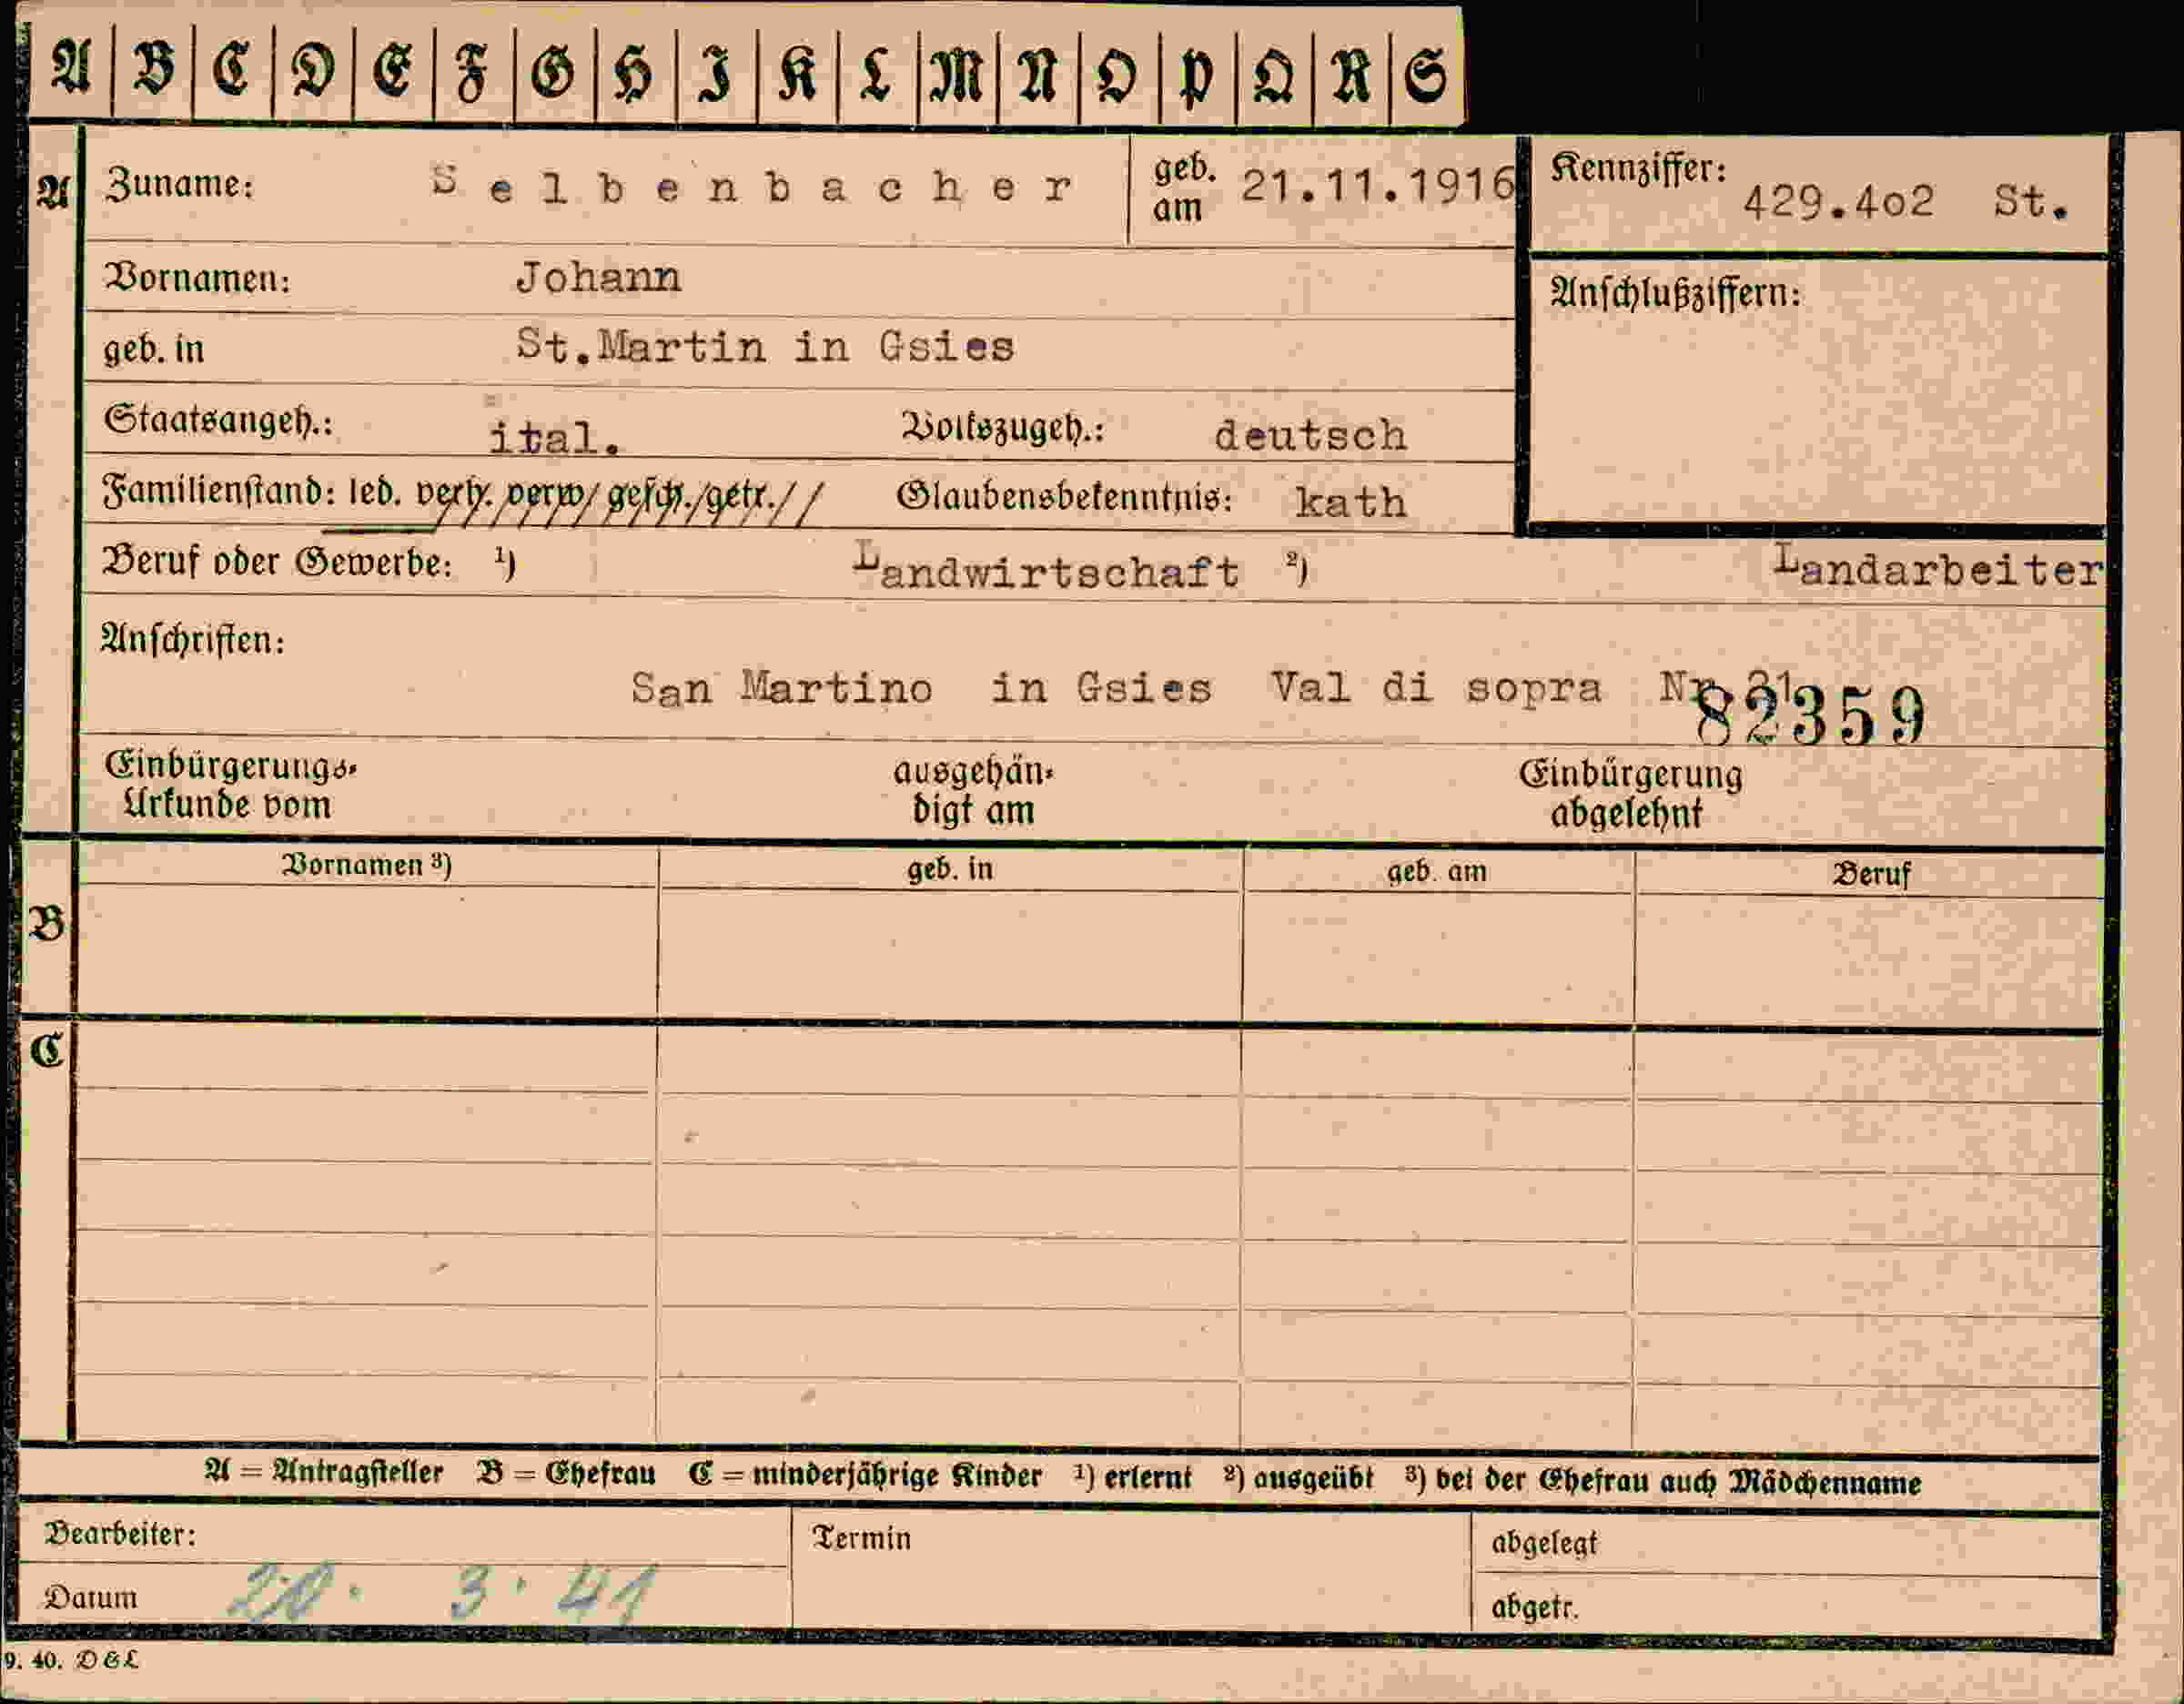 A B C D E F G H I K L M N O P Q R S
A Zuname: Selbenbacher geb. am 21.11.1916 Kennziffer: 429.4o2 St.
Vornamen: Johann
Anschlußziffern:
geb. in St.Martin in Gsies
Staatsangeh.: ital. Volkszugeh.: deutsch
Familienstand: led. verh. verw. gesch. getr. Glaubensbekenntnis: kath
Beruf oder Gewerbe: ¹) Landwirtschaft ²) Landarbeiter
Anschriften:
San Martino in Gsies Val di sopra Nr 21
82359
Einbürgerungs- ausgehän- Einbürgerung
Urkunde vom digt am abgelehnt
Vornamen ³) geb. in geb. am Beruf
B
C
A = Antragsteller B = Ehefrau C = minderjährige Kinder ¹) erlernt ²) ausgeübt ³) bei der Ehefrau auch Mädchenname
Bearbeiter: Termin abgelegt
Datum 20. 3. 41 abgetr.
9. 40. D&L